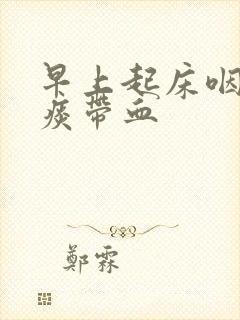 早上起床咽
痰带血
鄭霖